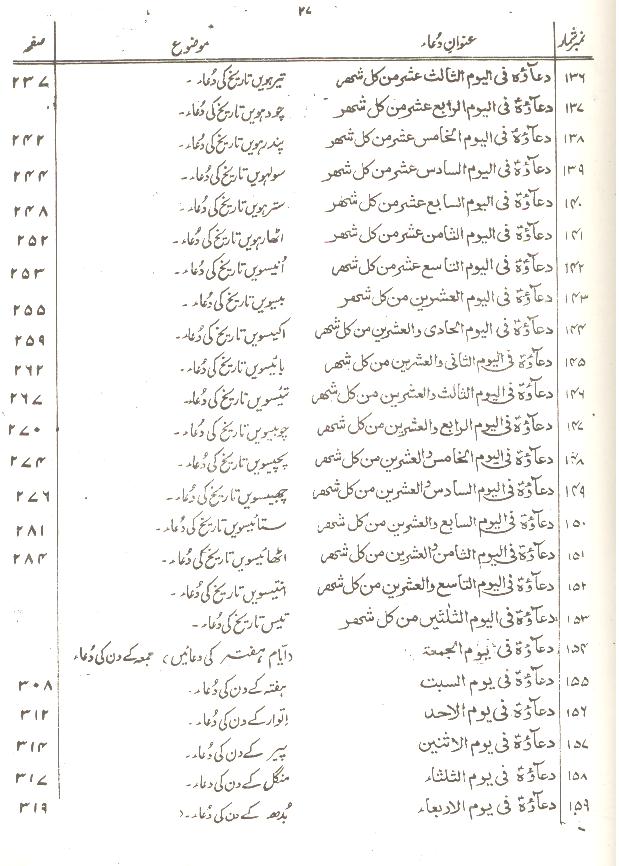 ۲۷
نمبر شمار عنوانِ دُعاء موضوع صفحہ
۱۳۶ دعاؤہٗ فی الیوم الثالث عشر من کل شھر تیرہویں تاریخ کی دُعاء۔ ۲۳۷
۱۳۷ دعاؤہٗ فی الیوم الرابع عشر من کل شھر چودہویں تاریخ کی دُعاء۔
۱۳۸ دعاؤہٗ فی الیوم الخامس عشر من کل شھر پندرہویں تاریخ کی دُعاء۔ ۲۴۲
۱۳۹ دعاؤہٗ فی الیوم السادس عشر من کل شھر سولہویں تاریخ کی دُعاء۔ ۲۴۴
۱۴۰ دعاؤہٗ فی الیوم السابع عشر من کل شھر سترہویں تاریخ کی دُعاء۔ ۲۴۸
۱۴۱ دعاؤہٗ فی الیوم الثامن عشر من کل شھر اٹھارہویں تاریخ کی دُعاء۔ ۲۵۲
۱۴۲ دعاؤہٗ فی الیوم التاسع عشر من کل شھر اُنیسویں تاریخ کی دُعاء۔ ۲۵۳
۱۴۳ دعاؤہٗ فی الیوم العشرین من کل شھر بیسویں تاریخ کی دُعاء۔ ۲۵۵
۱۴۴ دعاؤہٗ فی الیوم الحادی والعشرین من کل شھر اکیسویں تاریخ کی دُعاء۔ ۲۵۹
۱۴۵ دعاؤہٗ فی الیوم الثانی والعشرین من کل شھر بائیسویں تاریخ کی دُعاء۔ ۲۶۲
۱۴۶ دعاؤہٗ فی الیوم الثالث والعشرین من کل شھر تیئسویں تاریخ کی دُعاء۔ ۲۶۷
۱۴۷ دعاؤہٗ فی الیوم الرابع والعشرین من کل شھر چوبیسویں تاریخ کی دُعاء۔ ۲۷۰
۱۴۸ دعاؤہٗ فی الیوم الخامس والعشرین من کل شھر پچیسویں تاریخ کی دُعاء۔ ۲۷۴
۱۴۹ دعاؤہٗ فی الیوم السادس والعشرین من کل شھر چھبیسویں تاریخ کی دُعاء۔ ۲۷۶
۱۵۰ دعاؤہٗ فی الیوم السابع والعشرین من کل شھر ستائیسویں تاریخ کی دُعاء۔ ۲۸۱
۱۵۱ دعاؤہٗ فی الیوم الثامن والعشرین من کل شھر اٹھائیسویں تاریخ کی دُعاء۔ ۲۸۴
۱۵۲ دعاؤہٗ فی الیوم التاسع والعشرین من کل شھر انتیسویں تاریخ کی دُعاء۔
۱۵۳ دعاؤہٗ فی الیوم الثلٰثین من کل شھر تیس تاریخ کی دُعاء۔
۱۵۴ دعاؤہٗ فی یوم الجمعۃ (ایام ہفتہ کی دعائیں) جمعہ کے دن کی دُعاء
۱۵۵ دعاؤہٗ فی یوم السبت ہفتہ کے دن کی دُعاء۔ ۳۰۸
۱۵۶ دعاؤہٗ فی یوم الاحد اِتوار کے دن کی دُعاء۔ ۳۱۲
۱۵۷ دعاؤہٗ فی یوم الاثنین پیر کے دن کی دُعاء۔ ۳۱۴
۱۵۸ دعاؤہٗ فی یوم الثلثاء منگل کے دن کی دعاء۔ ۳۱۷
۱۵۹ دعاؤہٗ فی یوم الاربعاء بُدھ کے دن کی دُعاء۔ ۳۱۹